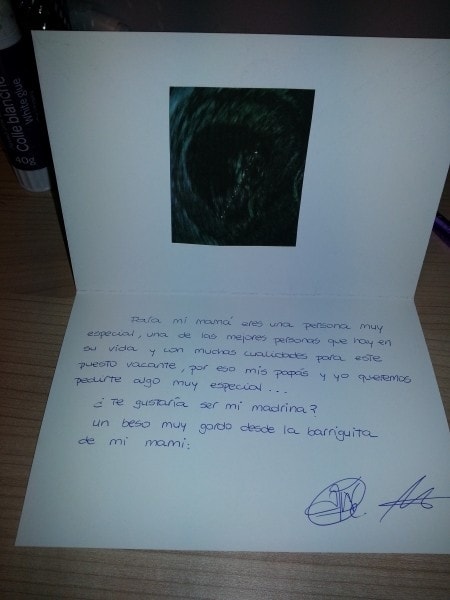 Colle blanche
White glue
40 g
Para mi mamá eres una persona muy
especial, una de las mejores personas que hay en
su vida y con muchas cualidades para este
puesto vacante, por eso mis papás y yo queremos
pedirte algo muy especial...
¿Te gustaría ser mi madrina?
un beso muy gordo desde la barriguita
de mi mami: